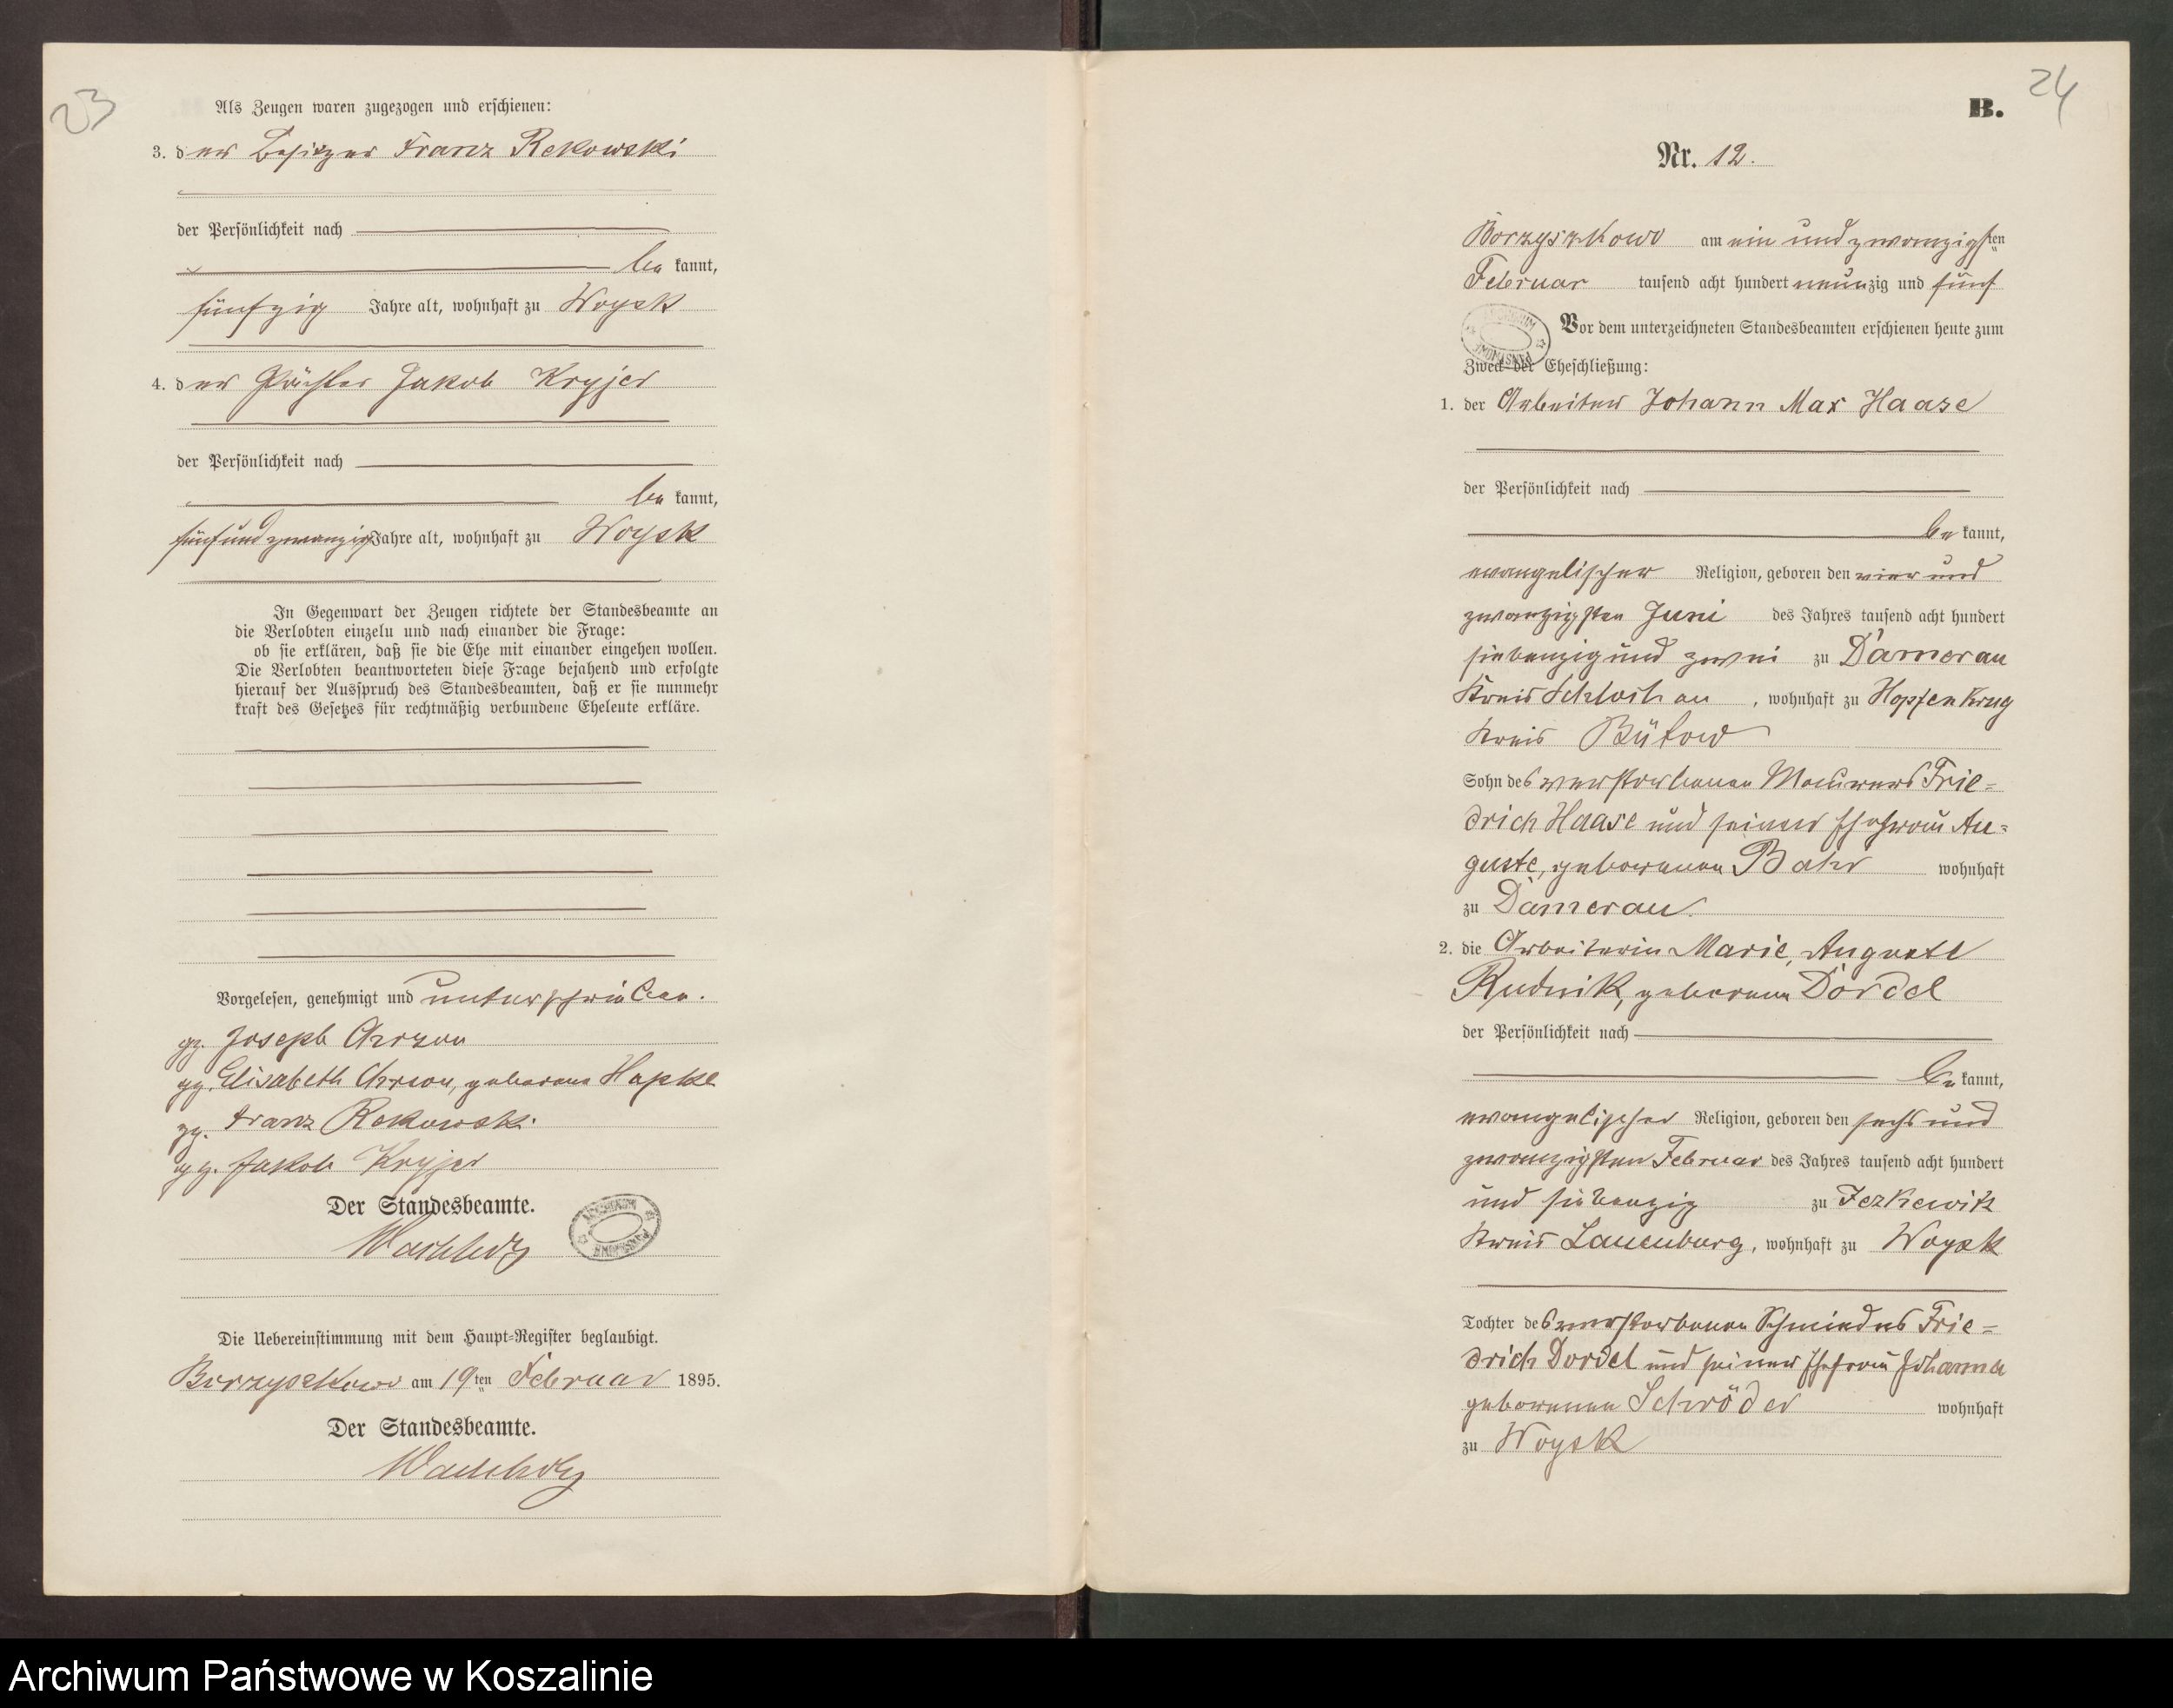 23
Als Zeugen waren zugezogen und erschienen:
3. der Besitzer Franz Rekowski
der Persönlichkeit nach
be kannt,
fünfzig Jahre alt, wohnhaft zu Woysk
4. der Pächter Jakob Kryjer
der Persönlichkeit nach
be kannt,
fünfundzwanzig Jahre alt, wohnhaft zu Woysk
In Gegenwart der Zeugen richtete der Standesbeamte an
die Verlobten einzeln und nach einander die Frage:
ob sie erklären, daß sie die Ehe mit einander eingehen wollen.
Die Verlobten beantworteten diese Frage bejahend und erfolgte
hierauf der Ausspruch des Standesbeamten, daß er sie nunmehr
kraft des Gesetzes für rechtmäßig verbundene Eheleute erkläre.
Vorgelesen, genehmigt und unterschrieben.
gz. Joseph
gz. Elisabeth geborene Hapke
gz. Franz Rekowski
gz. Jakob Kryjer
Der Standesbeamte.
Die Uebereinstimmung mit dem Haupt-Register beglaubigt.
Borzyszkowo am 19ten Februar 1895.
Der Standesbeamte.
24
B.
Nr. 12.
Borzyszkowo am ein und zwanzigsten
Februar tausend acht hundert neunzig und fünf
Vor dem unterzeichneten Standesbeamten erschienen heute zum
Zweck der Eheschließung:
1. der Arbeiter Johann Max Haase
der Persönlichkeit nach
be kannt,
evangelischer Religion, geboren den vier und
zwanzigsten Juni des Jahres tausend acht hundert
siebenzig und zwei zu Damerau
Kreis Schlochau, wohnhaft zu Hopfenkrug
Kreis Bütow
Sohn des verstorbenen Maurers Frie=
drich Haase und seiner Ehefrau Au=
guste, geborenen Bahr wohnhaft
zu Damerau.
2. die Arbeiterin Marie, Auguste
Rudnik, geborene Dordel
der Persönlichkeit nach
be kannt,
evangelischer Religion, geboren den sechs und
zwanzigsten Februar des Jahres tausend acht hundert
und siebenzig zu Jezkewitz
Kreis Lauenburg, wohnhaft zu Woysk
Tochter des verstorbenen Schmiedes Frie=
drich Dordel und seiner Ehefrau Johanna
geborenen Schröder wohnhaft
zu Woysk
Archiwum Państwowe w Koszalinie